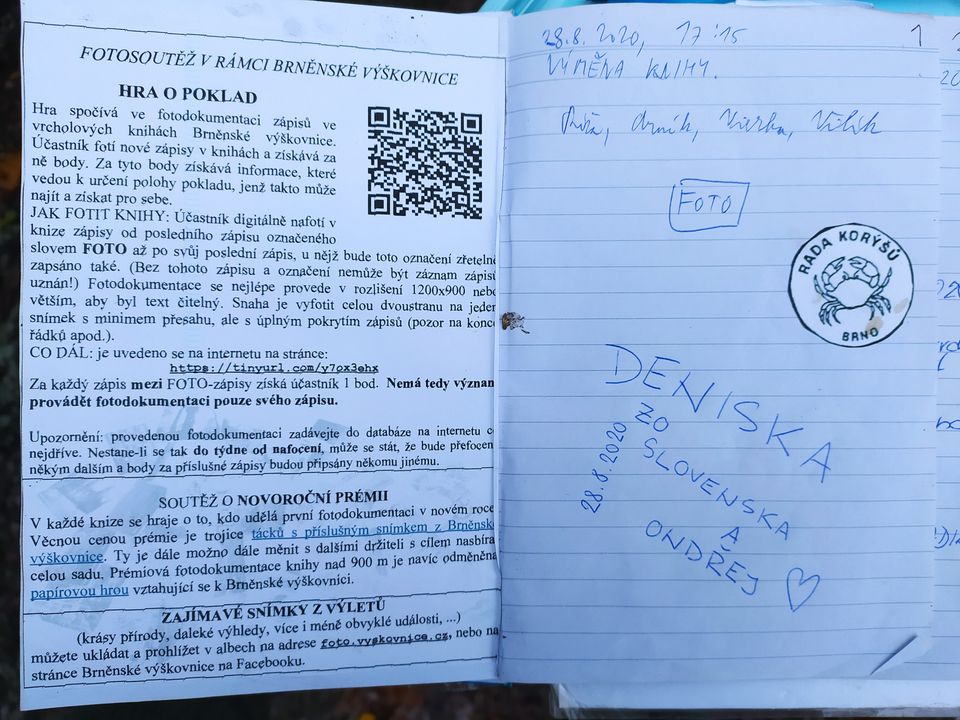 FOTOSOUTĚŽ V RÁMCI BRNĚNSKÉ VÝŠKOVNICE
HRA O POKLAD
Hra spočívá ve fotodokumentaci zápisů ve
vrcholových knihách Brněnské výškovnice.
Účastník fotí nové zápisy v knihách a získává za
ně body. Za tyto body získává informace, které
vedou k určení polohy pokladu, jenž takto může
najít a získat pro sebe.
JAK FOTIT KNIHY: Účastník digitálně nafotí v
knize zápisy od posledního zápisu označeného
slovem FOTO až po svůj poslední zápis, u nějž bude toto označení zřetelně
zapsáno také. (Bez tohoto zápisu a označení nemůže být záznam zápisů
uznán!) Fotodokumentace se nejlépe provede v rozlišení 1200x900 nebo
větším, aby byl text čitelný. Snaha je vyfotit celou dvoustranu na jeden
snímek s minimem přesahu, ale s úplným pokrytím zápisů (pozor na konce
řádků apod.).
CO DÁL: je uvedeno se na internetu na stránce:
https://tinyurl.com/y7ox3ehx
Za každý zápis mezi FOTO-zápisy získá účastník 1 bod. Nemá tedy význam
provádět fotodokumentaci pouze svého zápisu.
Upozornění: provedenou fotodokumentaci zadávejte do databáze na internetu c
nejdříve. Nestane-li se tak do týdne od nafocení, může se stát, že bude přefocen
někým dalším a body za příslušné zápisy budou připsány někomu jinému.
SOUTĚŽ O NOVOROČNÍ PRÉMII
V každé knize se hraje o to, kdo udělá první fotodokumentaci v novém roce
Věcnou cenou prémie je trojice tácků s příslušným snímkem z Brněnsk
výškovnice. Ty je dále možno dále měnit s dalšími držiteli s cílem nasbíra
celou sadu. Prémiová fotodokumentace knihy nad 900 m je navíc odměněna
papírovou hrou vztahující se k Brněnské výškovnici.
ZAJÍMAVÉ SNÍMKY Z VÝLETŮ
(krásy přírody, daleké výhledy, více i méně obvyklé události, ...)
můžete ukládat a prohlížet v albech na adrese foto.vyskovnice.cz, nebo na
stránce Brněnské výškovnice na Facebooku.
28.8.2020, 17:15
1
VÝMĚNA KNIHY.
FOTO
RADA KORÝŠŮ
BRNO
DENISKA
ZO
SLOVENSKA
A
ONDŘEJ
28.8.2020